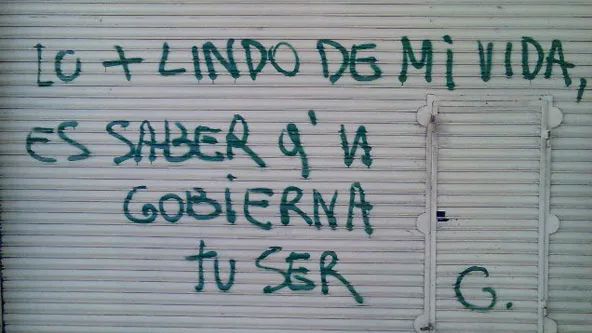 LO + LINDO DE Mi VIDA,
ES SABER q'
GOBiERNA
tU SER
G.